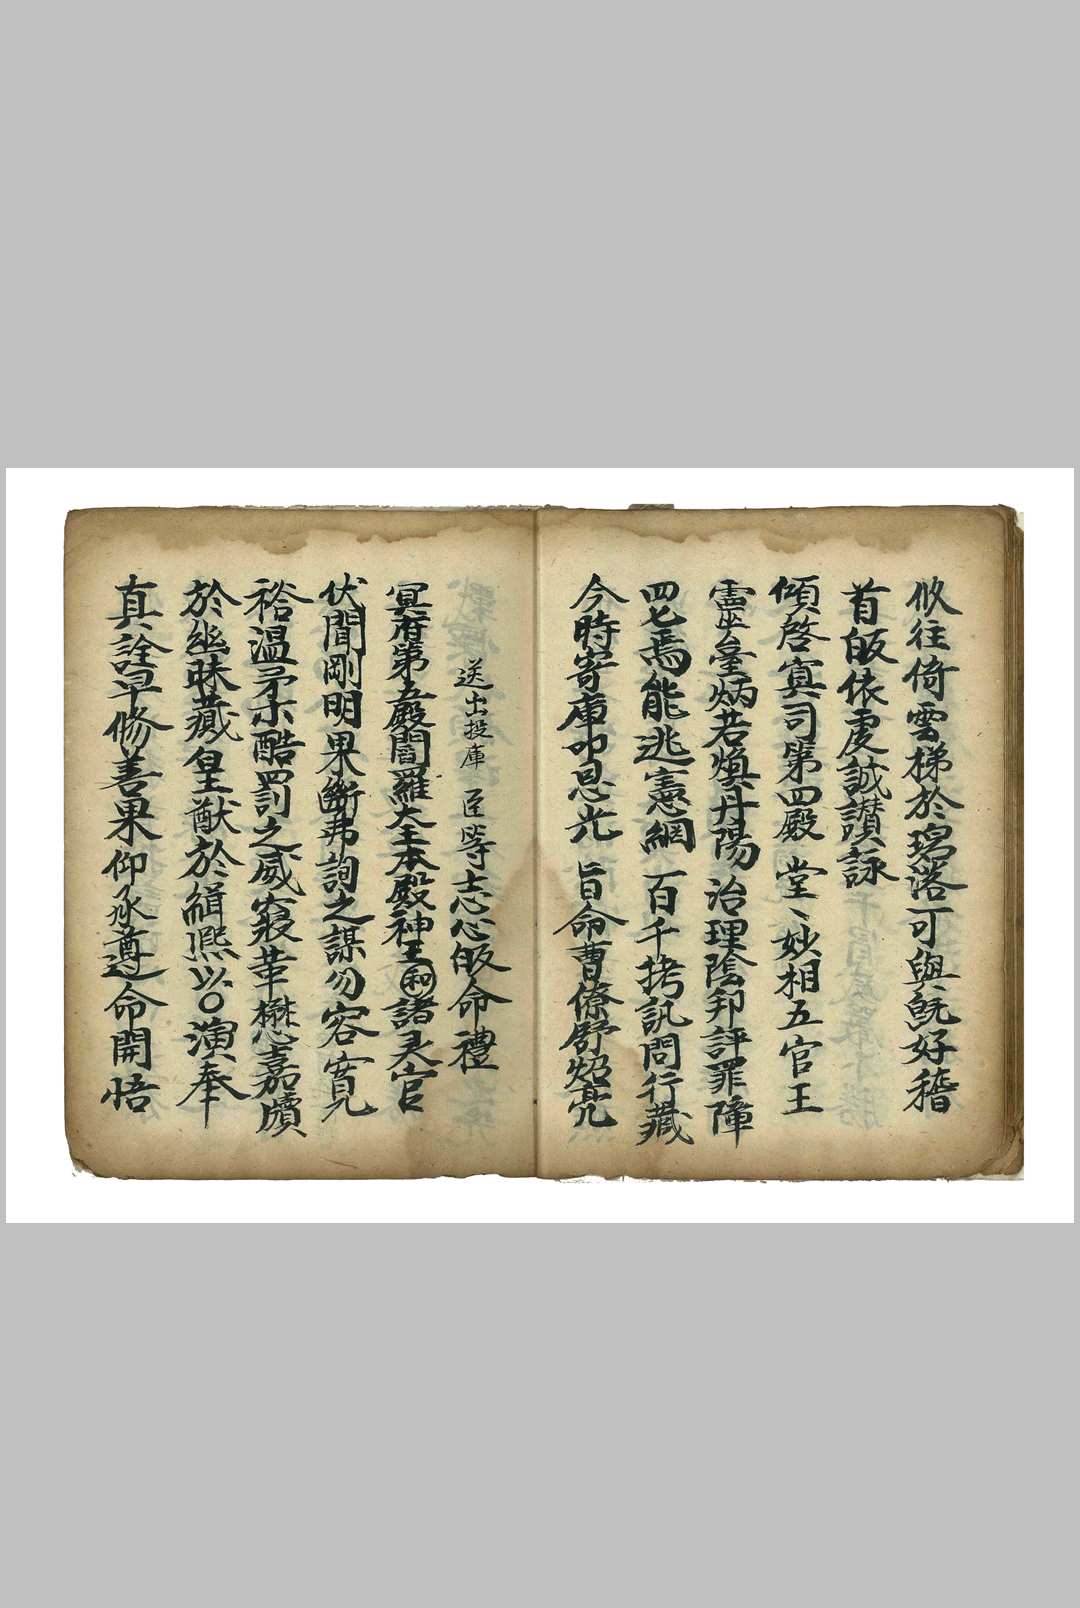 攸往倚雲梯於碧落可與既好稽
首皈依虔誠讃詠
傾啓冥司第四殿 堂〻妙相五官王
靈臺炳若煥丹陽 治理陰邦評罪障
四七焉能逃憲網 百千拷訊問行藏
今時寄庫叩恩光 旨命曹僚舒焰亮
送出投庫 臣等志心皈命禮
冥府第五殿閻羅大王本殿神王和諸灵官
伏聞剛明果斷弗詢之謀勿容寬
裕温柔示酷罰之威寂華懋嘉牘
於幽昧藏皇猷於緝熙以〇演奉
真詮早修善果仰承尊命開悟